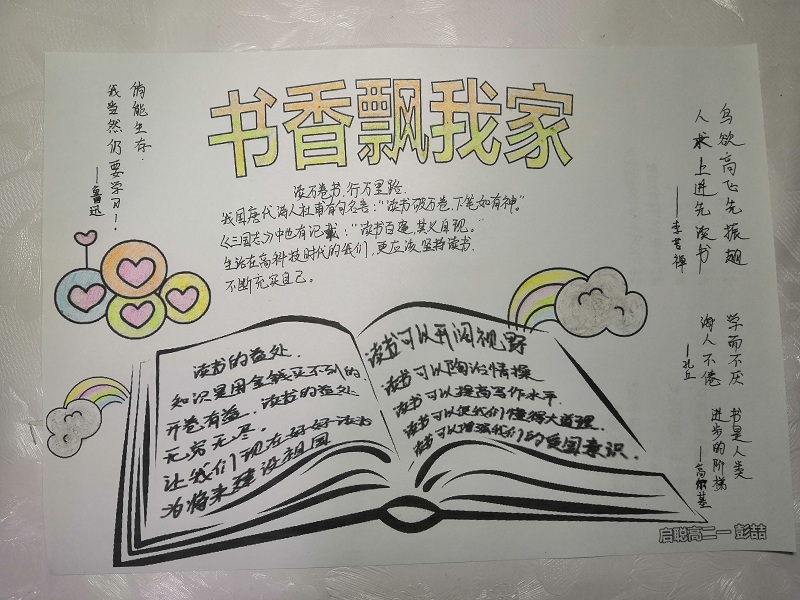 书香飘我家
倘能生存，
我当然仍要学习！
——鲁迅
读万卷书，行万里路。
我国唐代诗人杜甫有句名言："读书破万卷，下笔如有神"。
《三国志》中也有记载："读书百遍，其义自现。"
生活在高科技时代的我们，更应该坚持读书，
不断充实自己。
鸟欲高飞先振翅
人求上进先读书
——李苦禅
学而不厌
诲人不倦
——孔丘
书是人类
进步的阶梯
——高尔基
读书的益处
知识是用金钱买不到的，
开卷有益，读书的益处
无穷无尽。
让我们现在好好读书
为将来建设祖国
读书可以开阔视野
读书可以陶冶情操
读书可以提高写作水平，
读书可以使我们懂得大道理，
读书可以增强我们的爱国意识。
启聪高二一 彭喆